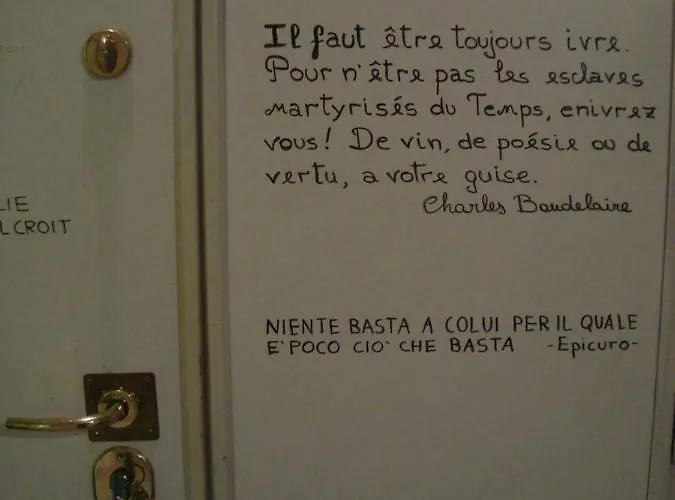 Il faut être toujours ivre.
Pour n'être pas les esclaves
martyrisés du Temps, enivrez
vous! De vin, de poésie ou de
vertu, a votre guise.
Charles Baudelaire
LIE
LCROIT
NIENTE BASTA A COLUI PER IL QUALE
E' POCO CIO' CHE BASTA -Epicuro-